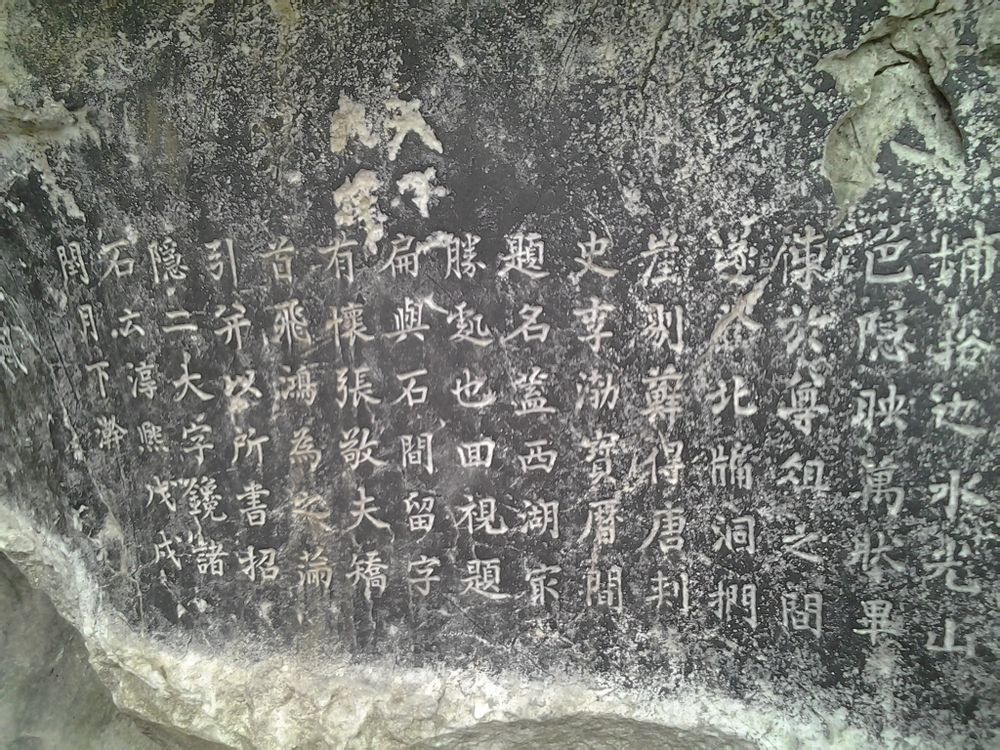 拾也水光山
色隱映萬狀畢
陳於尊俎之間
遂登北牖洞捫
崖剔蘚得唐刾
史李渤寳曆間
題名蓋西湖冣
勝處也回視題
扁與石間留字
有懷張敬夫矯
首飛鴻為之滿
引并以所書招
隱二大字鑱諸
石云淳熙戊戌
閏月下澣